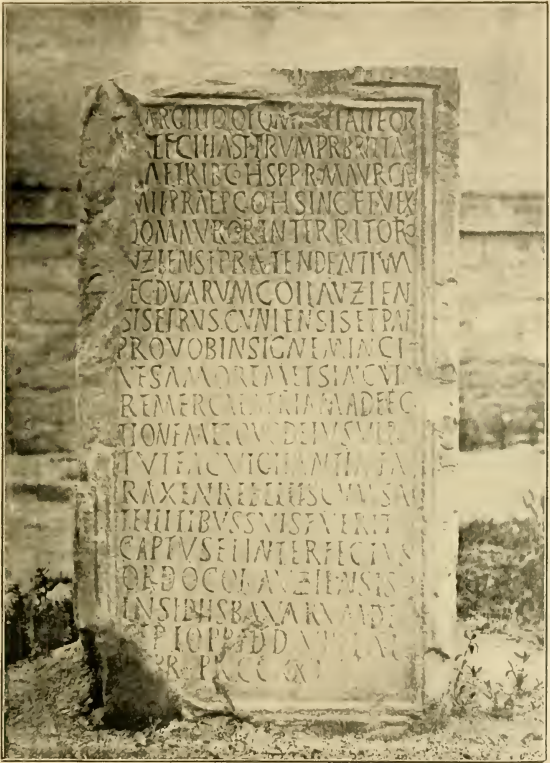 ARGILIO Q F Q MARTIALI EQ R
AEF C I HAST RVM PR BRITTA
AE TRIB C H SP PR MAVR CAE
MIL PRAEP COH SING ET VEX
QQ MAVROR IN TERRITORIO
VZIENSI PRAETENDENTIVM
EC DVARVM COLL AVZIEN
SIS ET RVSGVNIENSIS ET PAT
PROV OB INSIGNEM IN CI
VES AMOREM ET SINGVLA
REM ERGA PATRIAM ADFEC
TIONEM ET QVOD EIVS VIR
TVTE AC VIGILANTIA FA
RAXEN REBELLIS CVM SA
TELLITIBVS SVIS FVERIT
CAPTVS ET INTERFECTVS
ORDO COL AVZIENSIS
INSIDIIS BAVARVM DE
CEPTO P P F D D VIII KAL
BR PR CCXXI